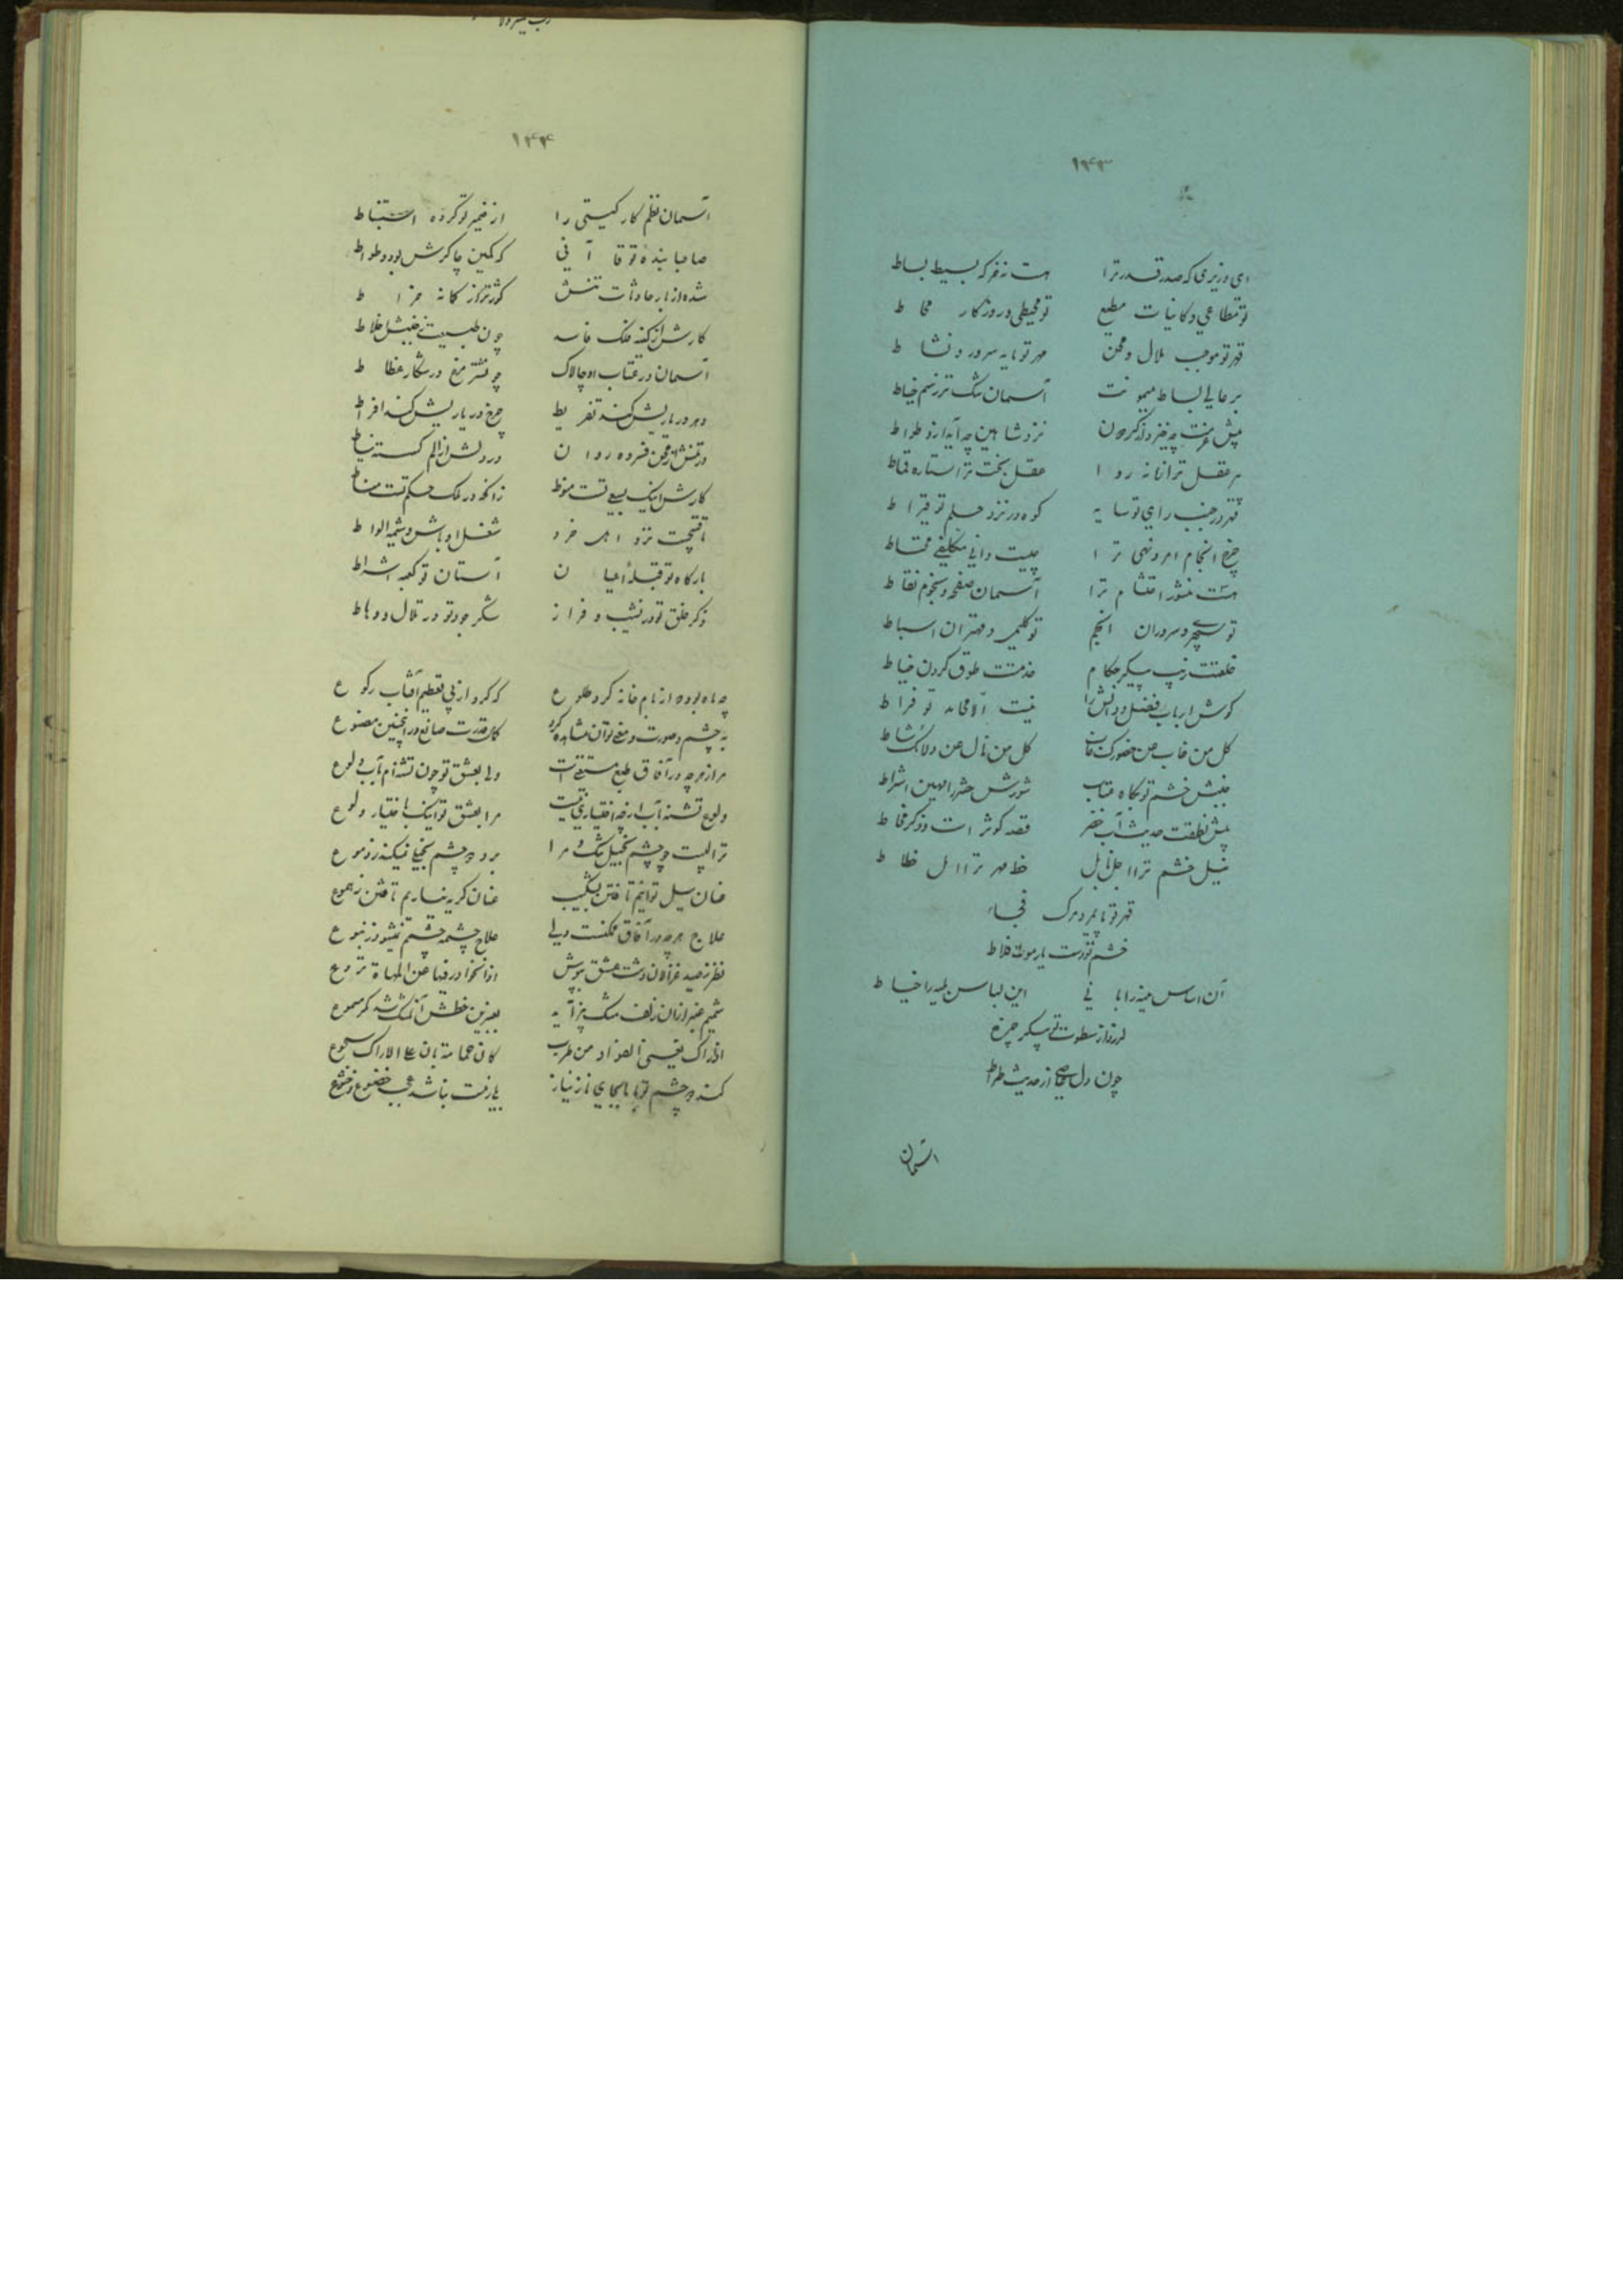 ۱۴۳
ای وزیری که صدر قدر ترا هست نه فرکه بسیط بساط
تو مطاعی و کائنات مطیع تو محیطی و روزگار محاط
قهر تو موجب ملال و محن مهر تو مایه سرور و نشاط
بر عالی بساط میمونت آسمان تنگ تر ز سم خیاط
پیش عزمت چه خیزد از گردون نزد شاهین چه آید از وطواط
عقل بخت ترا ستاره قماط
قهر در جنب رای تو سایه کوه در نزد حلم تو قیراط
چرخ انجام امر و نهی ترا چیست دانی مکلفی محتاط
هست منشور احتشام ترا آسمان صفحه و نجوم نقاط
تو سپهر و سروران انجم تو کلیمی و مهتران اسباط
خلعتت زیب پیکر حکام خدمتت طوق گردن ضباط
گوش ارباب فضل و دانش را نیست الا محامد تو قراط
کل من غاب عن حضورک خاب کل من نال عن ولائک شاط
جنبش خشم تو گاه عتاب شورش حشر را مهین اشراط
پیش نطقت حدیث آب خضر قصه کوثر است و ذکر قحاط
نیل خشم ترا اجل نایل خط مهر ترا امل خطاط
قهر تو پایمرد مرگ فجاء
خشم تو دست یار موت فلاط
آن اساس منیه را بانی این لباس بلیه را خیاط
لرزد از سطوت تو پیکر چرخ
چون دل عاصی از حدیث صراط
آسمان
۱۴۴
آسمان نظم کار گیتی را از ضمیر تو کرده استنباط
صاحبا بنده تو قاآنی که کمین چاکرش بود وطواط
شده از بار حادثات تنش کوژتر از کمانه خراط
کارش از کینه فلک فاسد چون طبیعت ز خبث اخلاط
آسمان در عتاب او چالاک مرغ در شکار قطاط
دهر در باریش کند تفریط چرخ در باریش کند افراط
در تنش از محن فسرده روان در دلش از الم گسسته نیاط
کارش اینک بسعی تست منوط زانکه در ملک حکم تست مناط
تا قبیحست نزد اهل خرد شغل اوباش و شیمه الواط
بارگاه تو قبله اعیان آستان تو کعبه اشراط
ذکر خلق تو در نشیب و فراز شکر جود تو در تلال و وهاط
چه ماه بود که از بام خانه کرد طلوع که کرد از پی تعظیم آفتاب رکوع
به چشم و صورت و معنی توان مشاهده کرد کمال قدرت صانع در اینچنین مصنوع
مرا ز هر چه در آفاق طبع مستغنی است ولی بعشق تو چون تشنه‌ام به آب ولوع
ولوع تشنه بآب ار چه اختیاری نیست مرا بعشق تو اینک باختیار ولوع
ترا لبیست چو چشم بخیل تنگ و مرا بود دو چشم نخیلی نمیکند ز دموع
عنان سیل توانیم تافتن بشکیب عنان گریه نیاریم تافتن ز هموع
علاج هر چه در آفاق ممکنست ولی علاج چشمه چشمم نمیشود ز نبوع
نظر ز صید غزالان دشت عشق بپوش
شمیم عنبر از آن زلف مشک بیز آید بعنبرین خطش آن مشک شد مگر مسموع
کان حمامة بان علی الاراک سجوع
کند دو چشم تو با ما بجای ناز نیاز نباشد عجب خضوع و خشوع